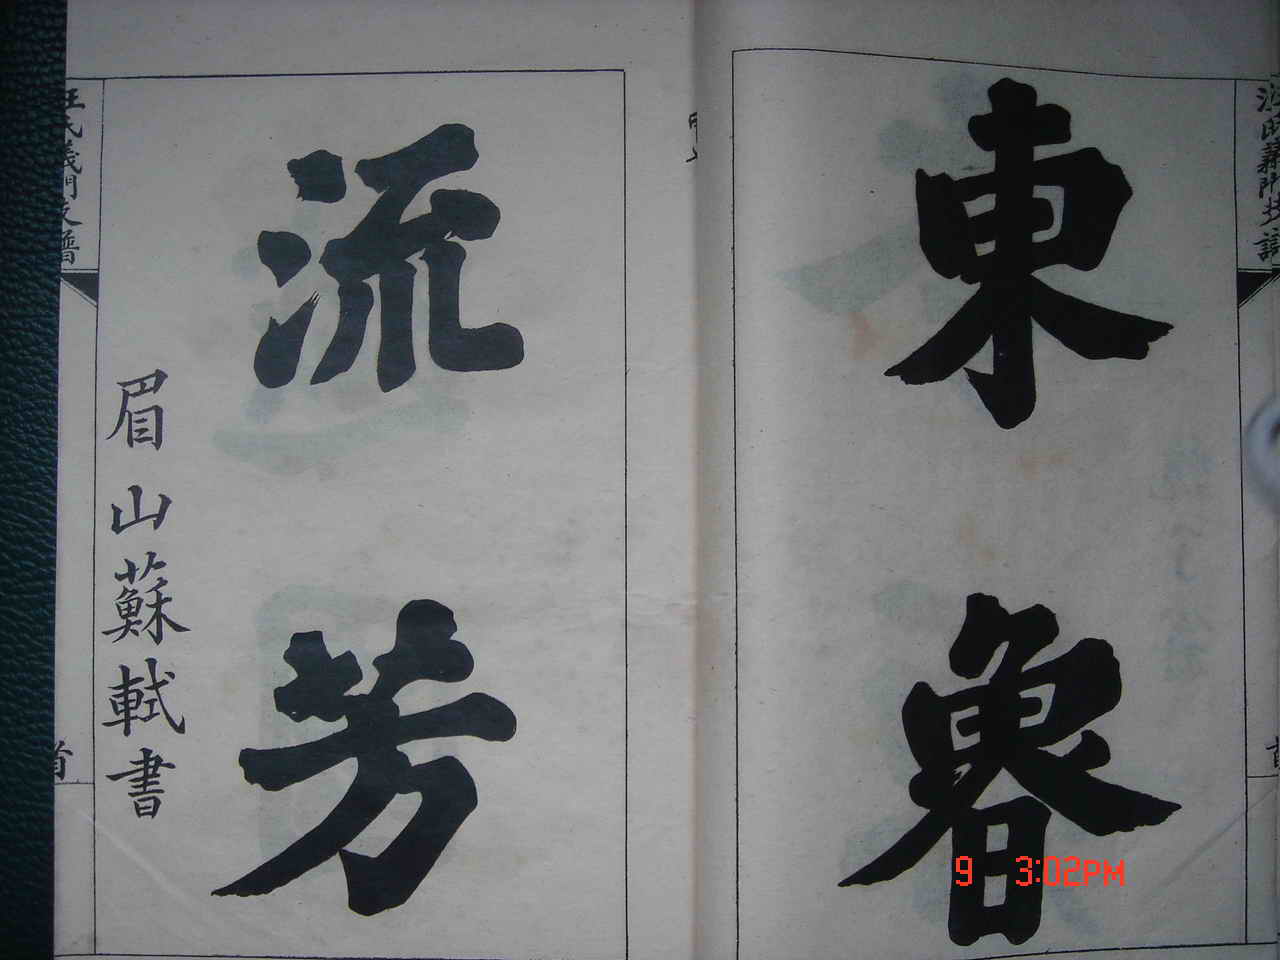 東魯
流芳
眉山蘇軾書
氏義門
譜
首
9 3:02PM